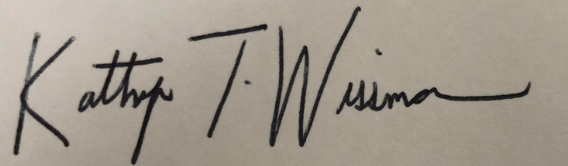 Kathryn T. Wissman